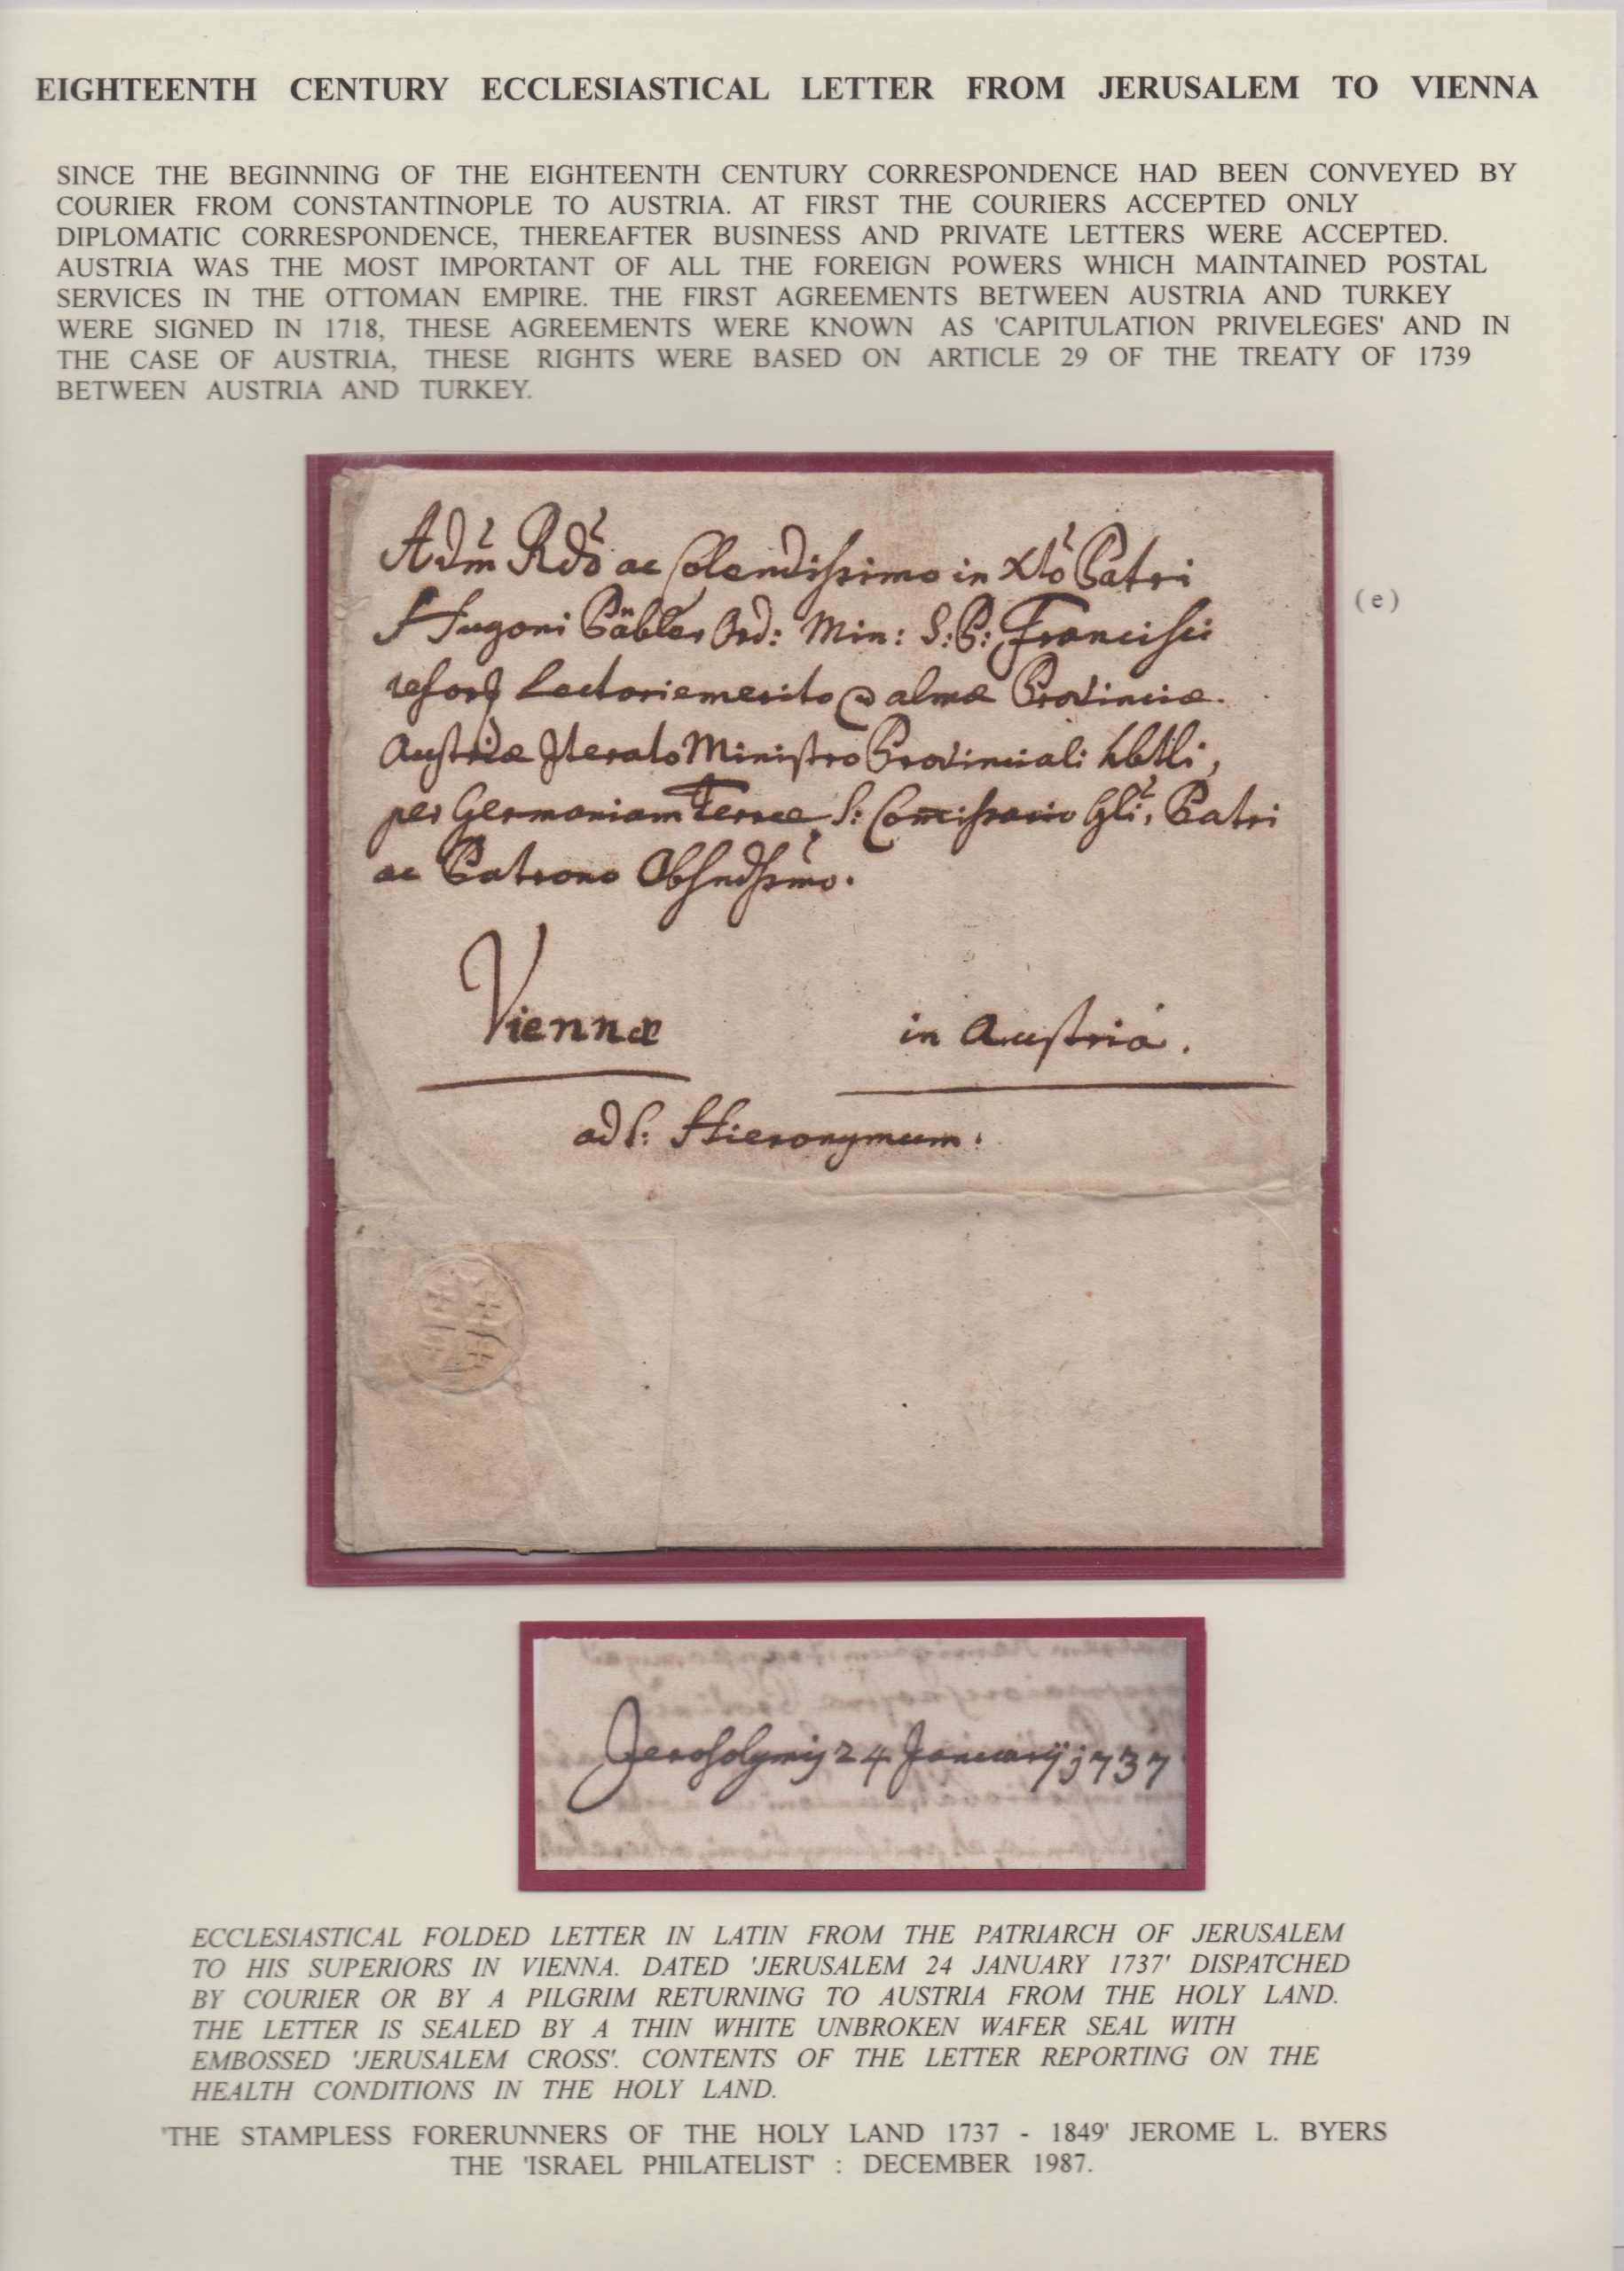 EIGHTEENTH CENTURY ECCLESIASTICAL LETTER FROM JERUSALEM TO VIENNA
SINCE THE BEGINNING OF THE EIGHTEENTH CENTURY CORRESPONDENCE HAD BEEN CONVEYED BY
COURIER FROM CONSTANTINOPLE TO AUSTRIA. AT FIRST THE COURIERS ACCEPTED ONLY
DIPLOMATIC CORRESPONDENCE, THEREAFTER BUSINESS AND PRIVATE LETTERS WERE ACCEPTED.
AUSTRIA WAS THE MOST IMPORTANT OF ALL THE FOREIGN POWERS WHICH MAINTAINED POSTAL
SERVICES IN THE OTTOMAN EMPIRE. THE FIRST AGREEMENTS BETWEEN AUSTRIA AND TURKEY
WERE SIGNED IN 1718, THESE AGREEMENTS WERE KNOWN AS 'CAPITULATION PRIVELEGES' AND IN
THE CASE OF AUSTRIA, THESE RIGHTS WERE BASED ON ARTICLE 29 OF THE TREATY OF 1739
BETWEEN AUSTRIA AND TURKEY.
Adm Rdo ac Colendissimo in Xto Patri
(e)
Hugoni Ord: Min: S: P: Francisci
Lectori emerito almæ Provinciæ
Austriæ Iterato Ministro Provinciali hbtli,
per Germaniam Terræ S: Comissario Gli, Patri
ac Patrono Obsndssmo.
Viennæ in Austria.
ad S: Hieronymum.
Jerosolymis 24 Januarÿ 1737
ECCLESIASTICAL FOLDED LETTER IN LATIN FROM THE PATRIARCH OF JERUSALEM
TO HIS SUPERIORS IN VIENNA. DATED 'JERUSALEM 24 JANUARY 1737' DISPATCHED
BY COURIER OR BY A PILGRIM RETURNING TO AUSTRIA FROM THE HOLY LAND.
THE LETTER IS SEALED BY A THIN WHITE UNBROKEN WAFER SEAL WITH
EMBOSSED 'JERUSALEM CROSS'. CONTENTS OF THE LETTER REPORTING ON THE
HEALTH CONDITIONS IN THE HOLY LAND.
'THE STAMPLESS FORERUNNERS OF THE HOLY LAND 1737 - 1849' JEROME L. BYERS
THE 'ISRAEL PHILATELIST' : DECEMBER 1987.